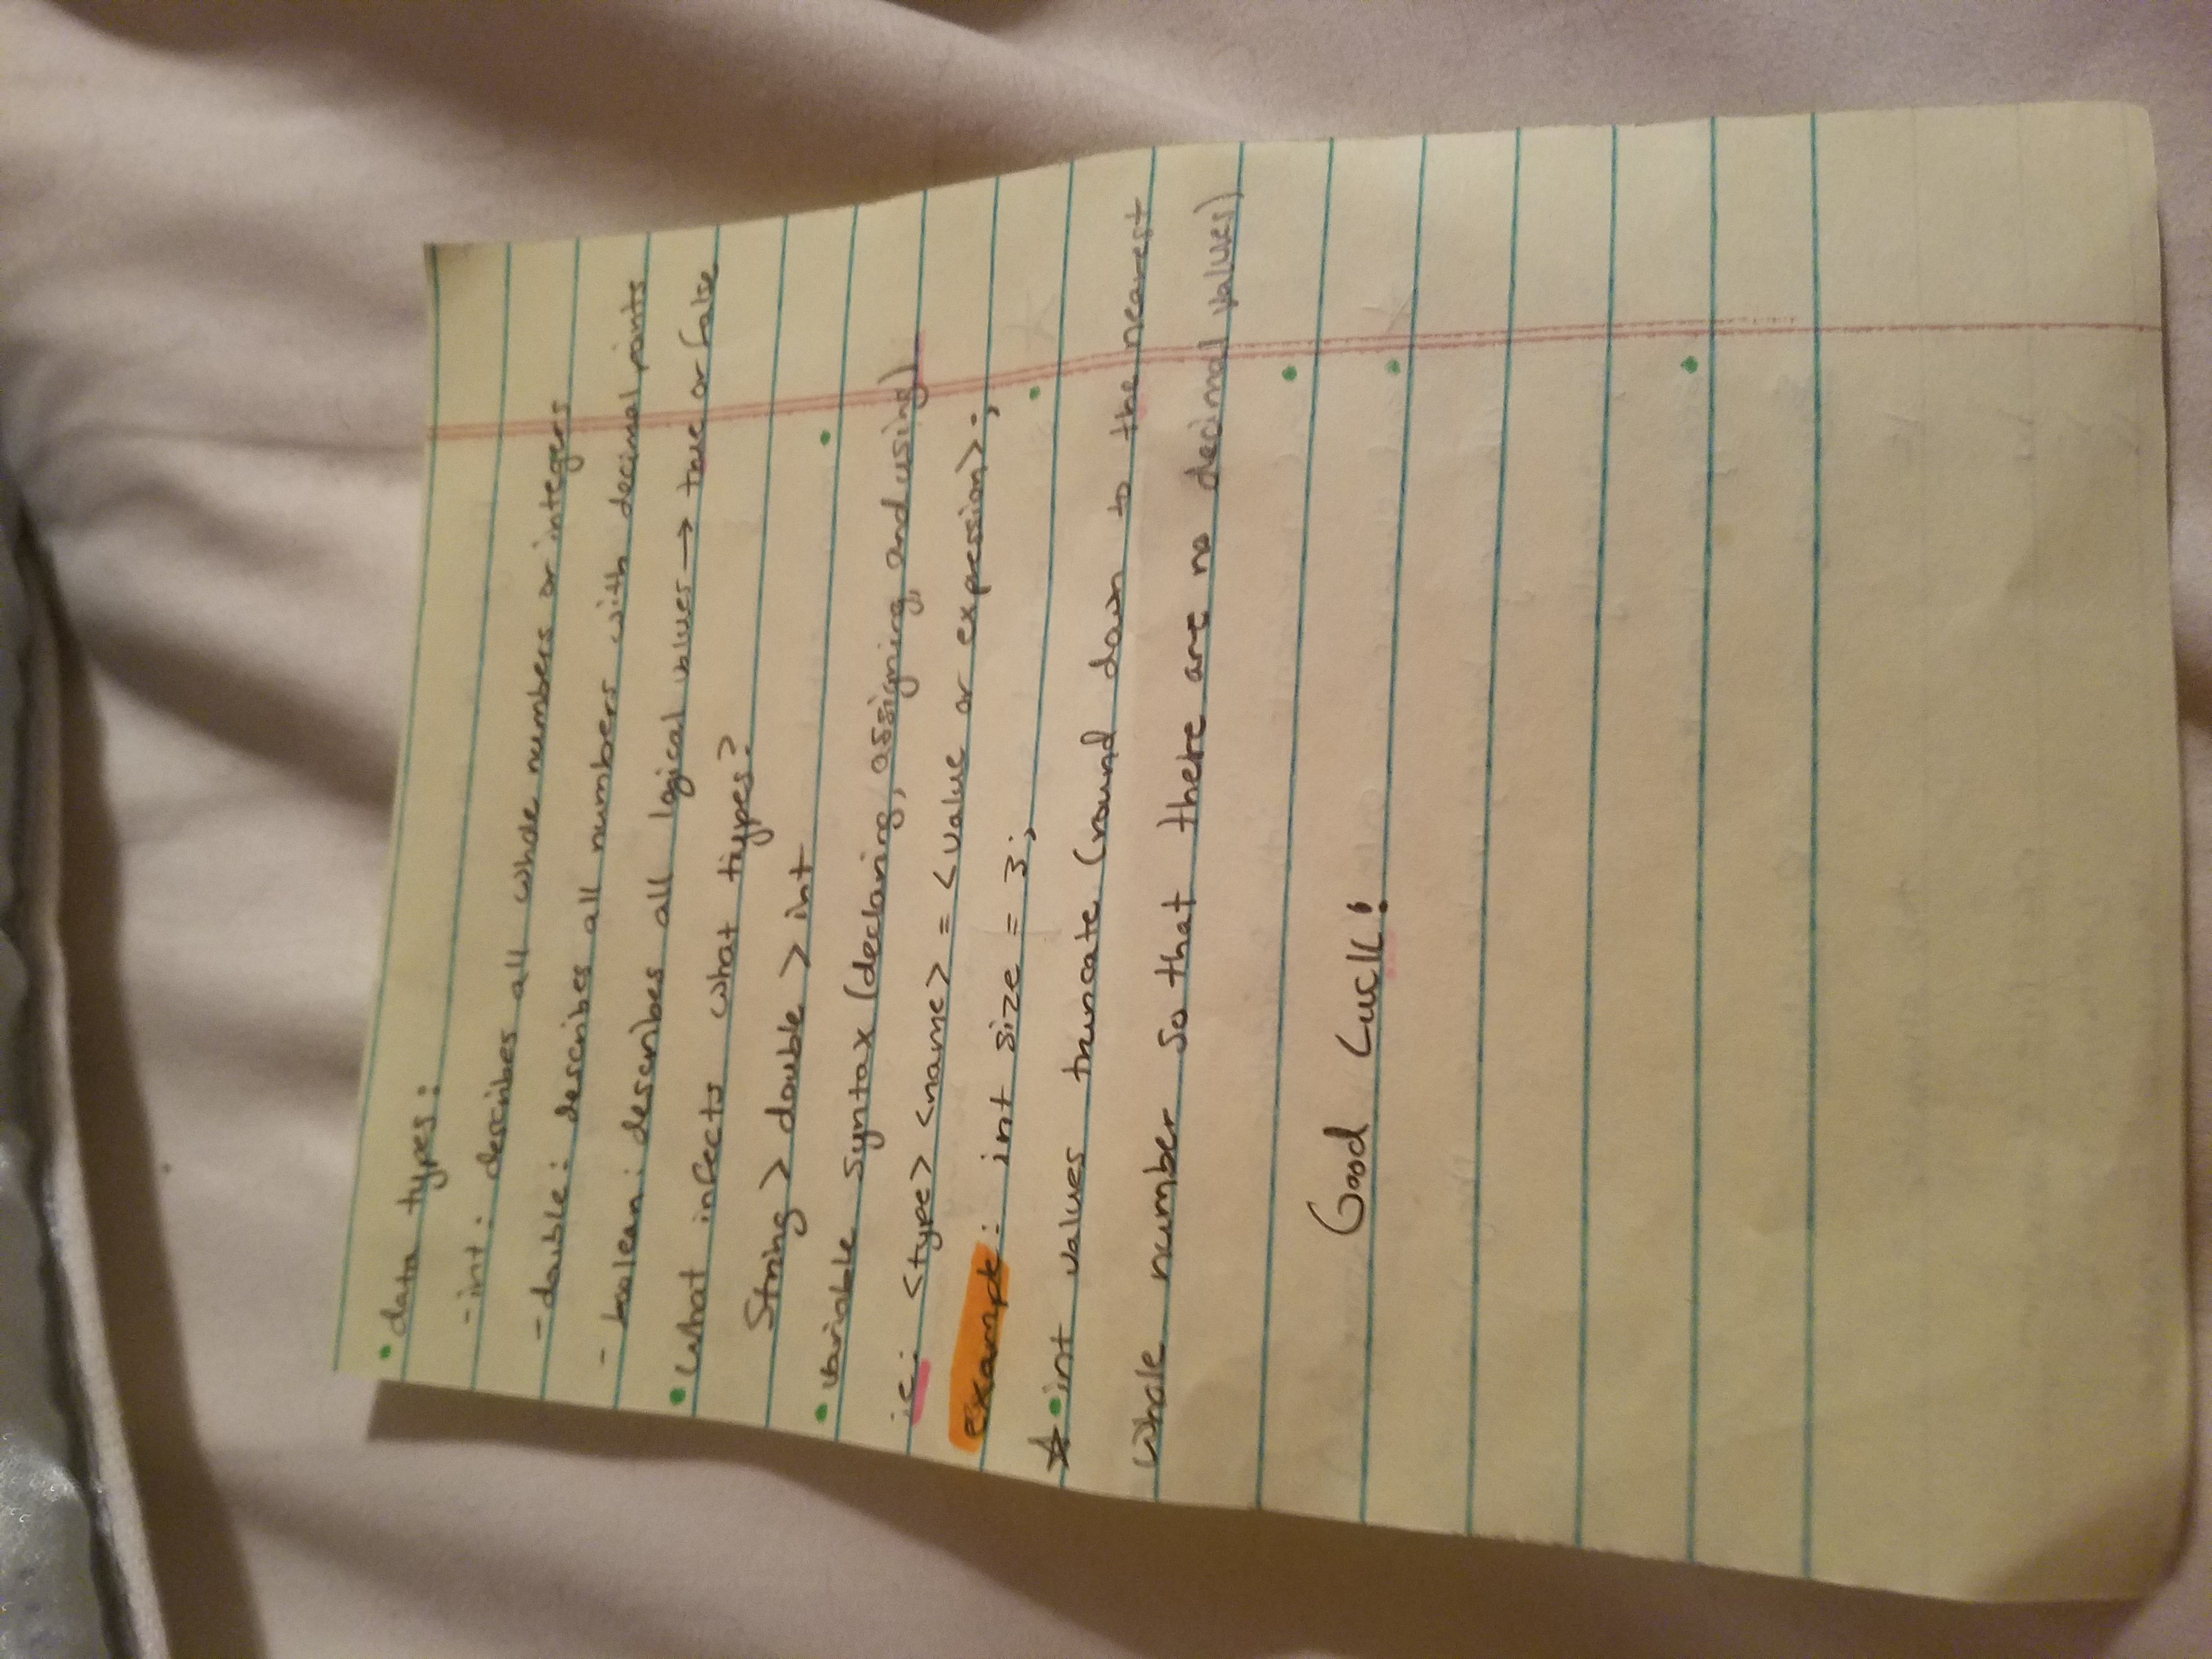 • data types:
- int: describes all whole numbers or integers
- double: describes all numbers with decimal points
- boolean: describes all logical values → true or false
• What infects what types?
String > double > int
• variable syntax (declaring, assigning, and using)
ie: <type> <name> = <value or expression>;
example: int size = 3;
☆ • int values truncate (round down to the nearest
whole number so that there are no decimal values)
Good Luck!